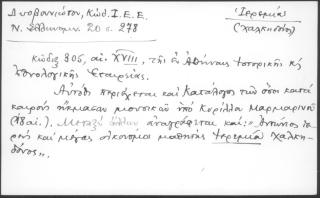 Δυοβουνιώτου, Κώδ. Ι.Ε.Ε.
Ν. Ἑλληνομν. 20 σ. 278
Ἱερεμίας
(Χαλκηδόνιος)
Κῶδιξ 305, αἰ. XVIII, τῆς ἐν Ἀθήναις Ἱστορικῆς κ
Ἐθνολογικῆς Ἑταιρίας.
Αὐτόθι περιέχεται καὶ Κατάλογος τῶν ὅσοι κατὰ
καιροὺς ἤκμασαν μουσικοὶ ὑπὸ Κυρίλλου Μαρμαρινοῦ
(18 αἰ.). Μεταξὺ ἄλλων ἀναγράφεται καὶ: "Ἀντώνιος ἱε-
ρεὺς καὶ μέγας οἰκονόμος μαθητὴς Ἱερεμία Χαλκη-
δόνος".